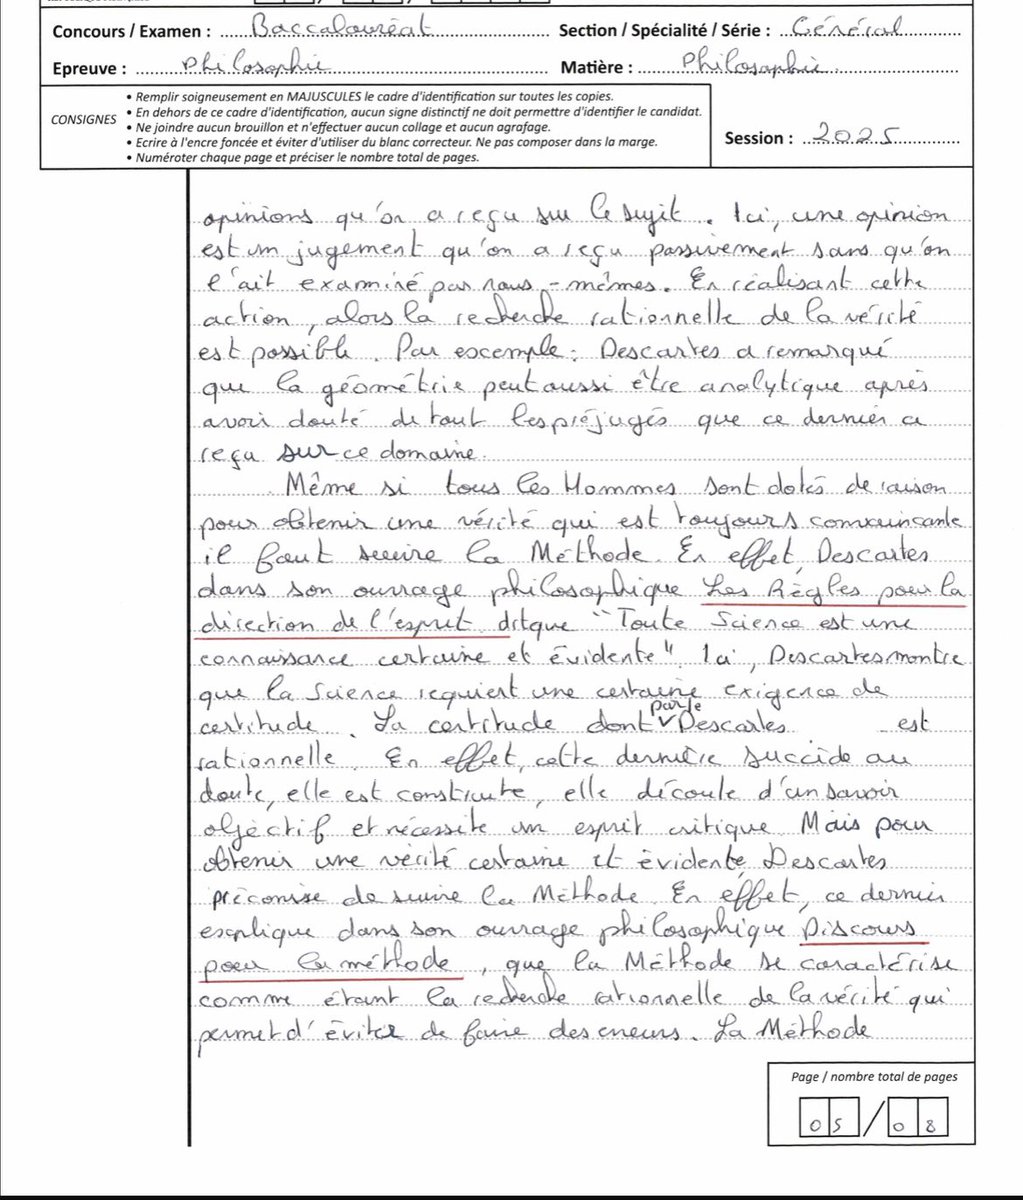 Concours / Examen : Baccalauréat Section / Spécialité / Série : Général
Epreuve : Philosophie Matière : Philosophie
CONSIGNES
• Remplir soigneusement en MAJUSCULES le cadre d'identification sur toutes les copies.
• En dehors de ce cadre d'identification, aucun signe distinctif ne doit permettre d'identifier le candidat.
• Ne joindre aucun brouillon et n'effectuer aucun collage et aucun agrafage.
• Ecrire à l'encre foncée et éviter d'utiliser du blanc correcteur. Ne pas composer dans la marge.
• Numéroter chaque page et préciser le nombre total de pages.
Session : 2025
opinions qu'on a reçu sur le sujet. Ici, une opinion
est un jugement qu'on a reçu passivement sans qu'on
l'ait examiné par nous-mêmes. En réalisant cette
action, alors la recherche rationnelle de la vérité
est possible. Par exemple: Descartes a remarqué
que la géométrie peut aussi être analytique après
avoir douté de tout les préjugés que ce dernier a
reçu sur ce domaine.
Même si tous les Hommes sont dotés de raison
pour obtenir une vérité qui est toujours convaincante
il faut suivre la Méthode. En effet, Descartes
dans son ouvrage philosophique Les Règles pour la
direction de l'esprit dit que "Toute Science est une
connaissance certaine et évidente". Ici, Descartes montre
que la Science requiert une certaine exigence de
certitude. La certitude dont parle Descartes est
rationnelle. En effet, cette dernière succède au
doute, elle est construite, elle découle d'un savoir
objectif et nécessite un esprit critique. Mais pour
obtenir une vérité certaine et évidente, Descartes
préconise de suivre la Méthode. En effet, ce dernier
explique dans son ouvrage philosophique Discours
pour la méthode, que la Méthode se caractérise
comme étant la recherche rationnelle de la vérité qui
permet d'éviter de faire des erreurs. La Méthode
Page / nombre total de pages
05 / 08